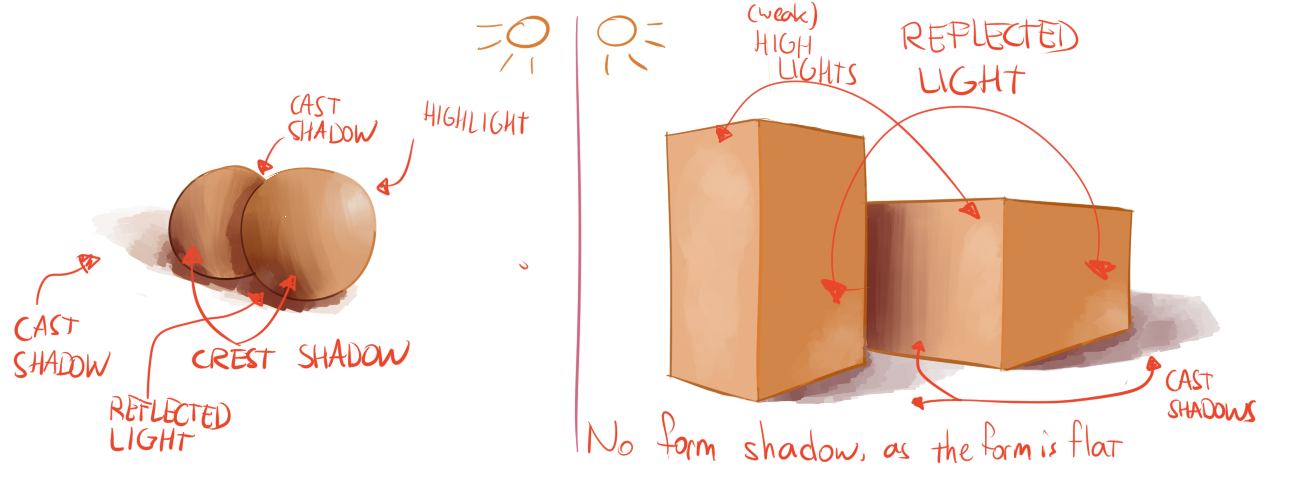 CAST
SHADOW
HIGHLIGHT
CAST
SHADOW
CREST SHADOW
REFLECTED
LIGHT
(weak)
HIGH
LIGHTS
REFLECTED
LIGHT
CAST
SHADOWS
No form shadow, as the form is flat